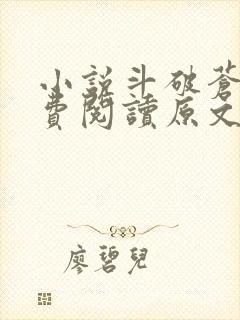 小説斗破蒼
費閱讀原文
廖碧兒